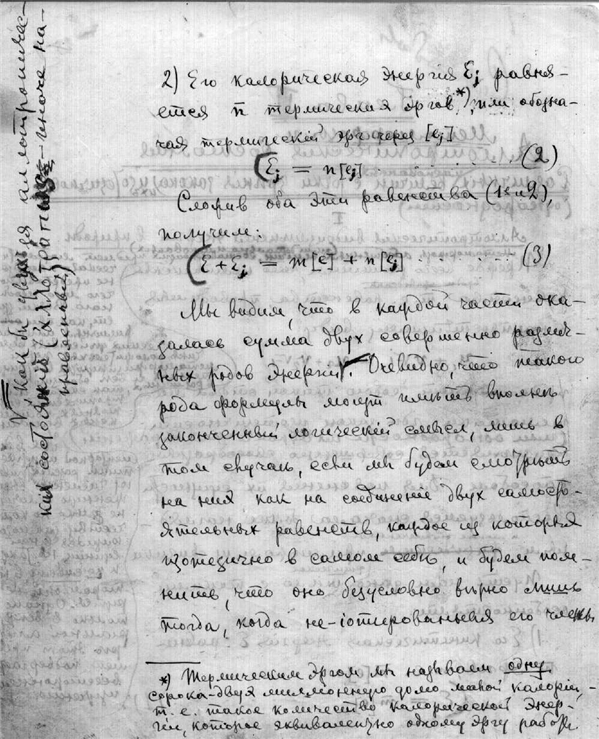 2) Его калорическая энергія Ɛj равня-
ется n термическая эргов *), или обозна-
чая термическій эрг через [ej]
Ɛj = n[ej] . . . . . . (2)
Сложив оба эти равенства (1 и 2),
получим:
Ɛ + Ɛj = m[e] + n[ej] . . . . . . (3)
Мы видим, что в каждой части ока-
залась сумма двух совершенно различ-
ных родов энергіи V. Очевидно, что такого
рода формулы могут имѣть вполнѣ
законченный логическій смысл, лишь в
том случаѣ, если мы будем смотрѣть
на них как на соединеніе двух самосто-
ятельных равенств, каждое из которых
изотопично в самом себѣ, и будем пом-
нить, что оно безусловно вѣрно лишь
тогда, когда не-іотированныя его члены
*) Термическим эргом мы называем одну
сорока-двух миллионную долю малой калоріи,
т. е. такое количество калорической энер-
гіи, которое эквивалентно одному эргу работы.
V, как бы двух аллотропичес-
ких состояній (аллотрап — иначе на-
правленный)